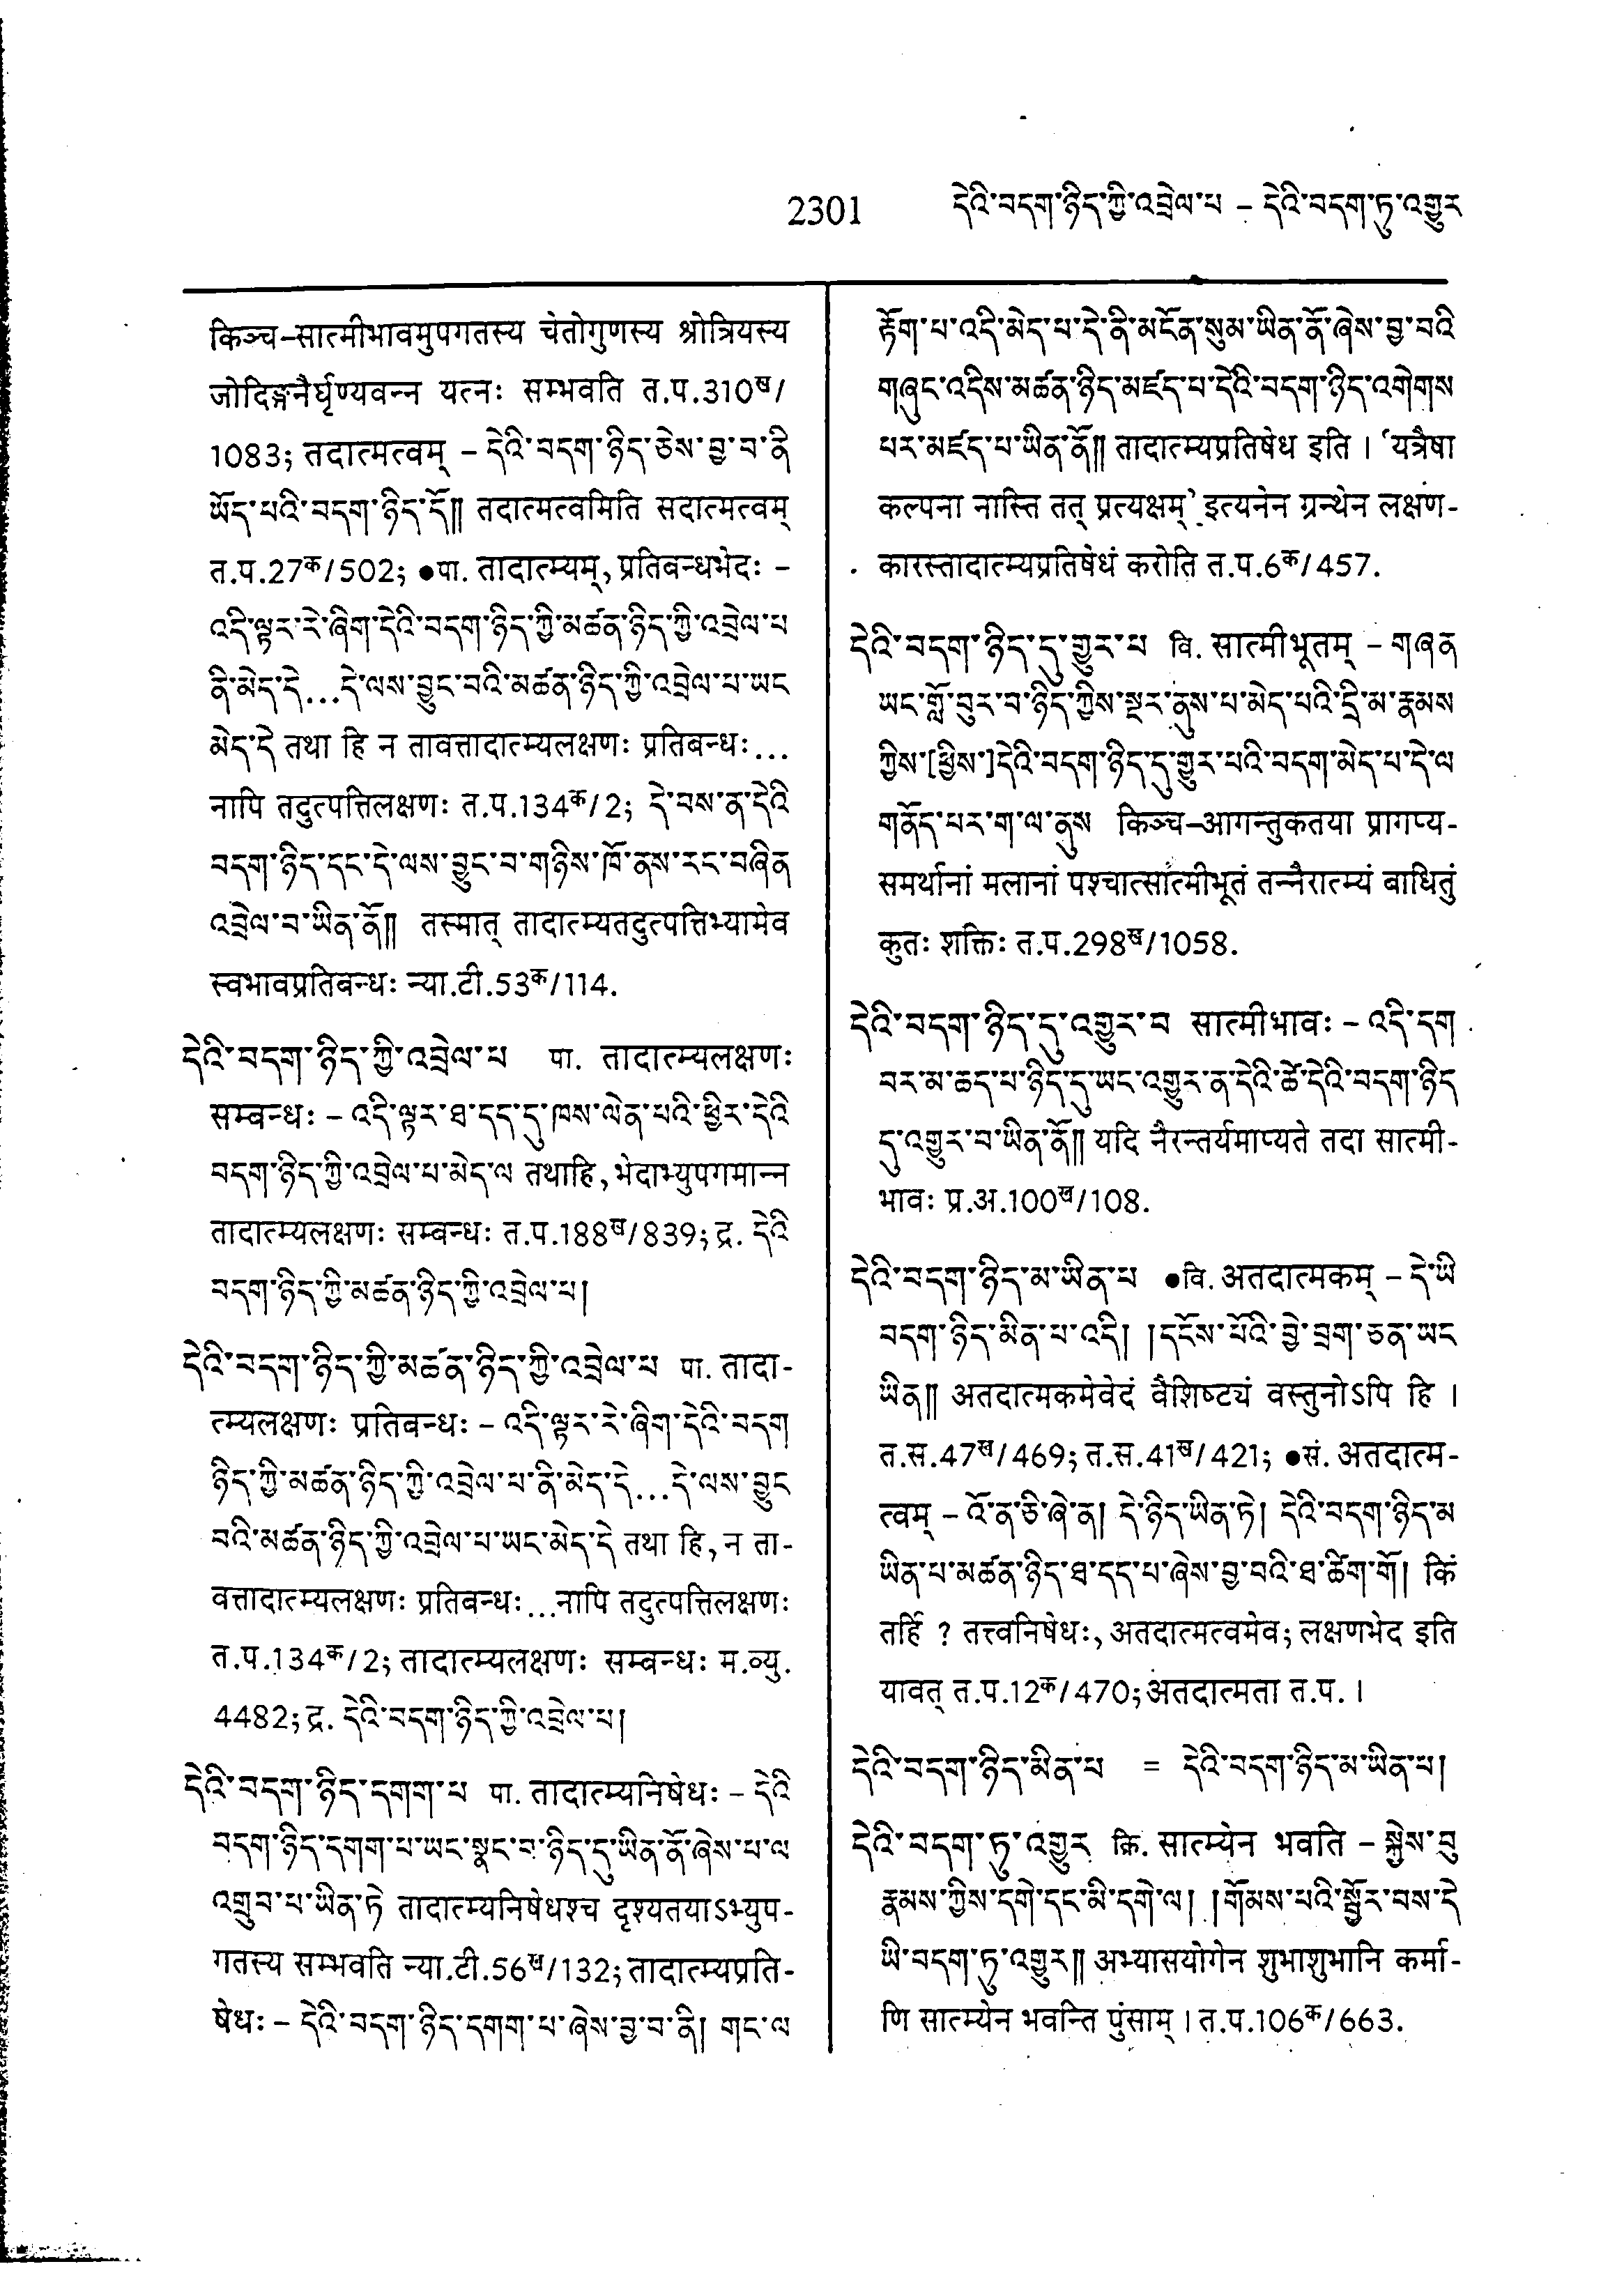 2301 དེའི་བདག་ཉིད་ཀྱི་འབྲེལ་པ – དེའི་བདག་ཏུ་འགྱུར
किञ्च–सात्मीभावमुपगतस्य चेतोगुणस्य श्रोत्रियस्य
जोदिङ्गनैर्घृण्यवन्न यत्नः सम्भवति त.प.310ख/
1083; तदात्मत्वम् – དེའི་བདག་ཉིད་ཅེས་བྱ་བ་ནི
ཡོད་པའི་བདག་ཉིད་དོ།། तदात्मत्वमिति सदात्मत्वम्
त.प.27क/502; ●पा. तादात्म्यम्, प्रतिबन्धभेदः –
འདི་ལྟར་རེ་ཞིག་དེའི་བདག་ཉིད་ཀྱི་མཚན་ཉིད་ཀྱི་འབྲེལ་པ
ནི་མེད་དེ...དེ་ལས་བྱུང་བའི་མཚན་ཉིད་ཀྱི་འབྲེལ་པ་ཡང
མེད་དེ तथा हि न तावत्तादात्म्यलक्षणः प्रतिबन्धः...
नापि तदुत्पत्तिलक्षणः त.प.134क/2; དེ་བས་ན་དེའི
བདག་ཉིད་དང་དེ་ལས་བྱུང་བ་གཉིས་ཁོ་ནས་རང་བཞིན
འབྲེལ་བ་ཡིན་ནོ།། तस्मात् तादात्म्यतदुत्पत्तिभ्यामेव
स्वभावप्रतिबन्धः न्या.टी.53क/114.
དེའི་བདག་ཉིད་ཀྱི་འབྲེལ་པ पा. तादात्म्यलक्षणः
सम्बन्धः – འདི་ལྟར་ཐ་དད་དུ་ཁས་ལེན་པའི་ཕྱིར་དེའི
བདག་ཉིད་ཀྱི་འབྲེལ་པ་མེད་ལ तथाहि, भेदाभ्युपगमान्न
तादात्म्यलक्षणः सम्बन्धः त.प.188ख/839; द्र. དེའི
བདག་ཉིད་ཀྱི་མཚན་ཉིད་ཀྱི་འབྲེལ་པ།
དེའི་བདག་ཉིད་ཀྱི་མཚན་ཉིད་ཀྱི་འབྲེལ་པ पा. तादा-
त्म्यलक्षणः प्रतिबन्धः – འདི་ལྟར་རེ་ཞིག་དེའི་བདག
ཉིད་ཀྱི་མཚན་ཉིད་ཀྱི་འབྲེལ་པ་ནི་མེད་དེ...དེ་ལས་བྱུང
བའི་མཚན་ཉིད་ཀྱི་འབྲེལ་པ་ཡང་མེད་དེ तथा हि, न ता-
वत्तादात्म्यलक्षणः प्रतिबन्धः...नापि तदुत्पत्तिलक्षणः
त.प.134क/2; तादात्म्यलक्षणः सम्बन्धः म.व्यु.
4482; द्र. དེའི་བདག་ཉིད་ཀྱི་འབྲེལ་པ།
དེའི་བདག་ཉིད་དགག་པ पा. तादात्म्यनिषेधः – དེའི
བདག་ཉིད་དགག་པ་ཡང་སྣང་བ་ཉིད་དུ་ཡིན་ནོ་ཞེས་པ་ལ
འགྲུབ་པ་ཡིན་ཏེ तादात्म्यनिषेधश्च दृश्यतयाऽभ्युप-
गतस्य सम्भवति न्या.टी.56ख/132; तादात्म्यप्रति-
षेधः – དེའི་བདག་ཉིད་དགག་པ་ཞེས་བྱ་བ་ནི། གང་ལ
རྟོག་པ་འདི་མེད་པ་དེ་ནི་མངོན་སུམ་ཡིན་ནོ་ཞེས་བྱ་བའི
གཞུང་འདིས་མཚན་ཉིད་མཛད་པ་དེའི་བདག་ཉིད་འགེགས
པར་མཛད་པ་ཡིན་ནོ།། तादात्म्यप्रतिषेध इति । 'यत्रैषा
कल्पना नास्ति तत् प्रत्यक्षम्' इत्यनेन ग्रन्थेन लक्षण-
कारस्तादात्म्यप्रतिषेधं करोति त.प.6क/457.
དེའི་བདག་ཉིད་དུ་གྱུར་པ वि. सात्मीभूतम् – གཞན
ཡང་གློ་བུར་བ་ཉིད་ཀྱིས་སྔར་ནུས་པ་མེད་པའི་དྲི་མ་རྣམས
ཀྱིས་[ཕྱིས་]དེའི་བདག་ཉིད་དུ་གྱུར་པའི་བདག་མེད་པ་དེ་ལ
གནོད་པར་ག་ལ་ནུས किञ्च–आगन्तुकतया प्रागप्य-
समर्थानां मलानां पश्चात्सात्मीभूतं तन्नैरात्म्यं बाधितुं
कुतः शक्तिः त.प.298ख/1058.
དེའི་བདག་ཉིད་དུ་འགྱུར་བ सात्मीभावः – འདི་དག
བར་མ་ཆད་པ་ཉིད་དུ་ཡང་འགྱུར་ན་དེའི་ཚེ་དེའི་བདག་ཉིད
དུ་འགྱུར་བ་ཡིན་ནོ།། यदि नैरन्तर्यमाप्यते तदा सात्मी-
भावः प्र.अ.100ख/108.
དེའི་བདག་ཉིད་མ་ཡིན་པ ●वि. अतदात्मकम् – དེ་ཡི
བདག་ཉིད་མིན་པ་འདི། །དངོས་པོའི་བྱེ་བྲག་ཅན་ཡང
ཡིན།། अतदात्मकमेवेदं वैशिष्ट्यं वस्तुनोऽपि हि ।
त.स.47ख/469; त.स.41ख/421; ●सं. अतदात्म-
त्वम् – འོ་ན་ཅི་ཞེ་ན། དེ་ཉིད་ཡིན་ཏེ། དེའི་བདག་ཉིད་མ
ཡིན་པ་མཚན་ཉིད་ཐ་དད་པ་ཞེས་བྱ་བའི་ཐ་ཚིག་གོ། किं
तर्हि ? तत्त्वनिषेधः, अतदात्मत्वमेव; लक्षणभेद इति
यावत् त.प.12क/470; अतदात्मता त.प. ।
དེའི་བདག་ཉིད་མིན་པ = དེའི་བདག་ཉིད་མ་ཡིན་པ།
དེའི་བདག་ཏུ་འགྱུར क्रि. सात्म्येन भवति – སྐྱེས་བུ
རྣམས་ཀྱིས་དགེ་དང་མི་དགེ་ལ། །གོམས་པའི་སྦྱོར་བས་དེ
ཡི་བདག་ཏུ་འགྱུར།། अभ्यासयोगेन शुभाशुभानि कर्मा-
णि सात्म्येन भवन्ति पुंसाम् । त.प.106क/663.